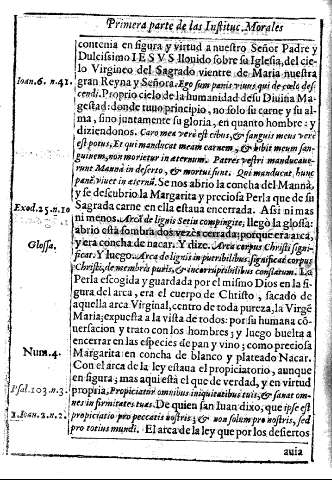 Primera parte de las Instituc. Morales
contenia en figura y virtud a nuestro Señor Padre y
Dulcissimo IESVS llouido sobre su Iglesia, del cie
lo Virgineo del Sagrado vientre de Maria nuestra
Ioan. 6. n. 41. gran Reyna y Señora. Ego sum panis viuus qui de cœlo des-
cendi. Proprio cielo de la humanidad desu Diuina Ma-
gestad: donde tuuo principio, no solo su carne y su al-
ma, sino juntamente su gloria, en quanto hombre: y
diziendonos. Caro mea verè est cibus, & sanguis meus verè
est potus, Et qui manducat meam carnem, & bibit meum san-
guinem, non morietur in aternum. Patres vestri manducaue-
runt Mannà in deserto, & mortui sunt. Qui manducat, hunc
panē viuet in aternū. Se nos abrio la concha del Mannà,
y se descubrio la Margarita y preciosa Perla que de su
Exod. 25. n. 10 Sagrada carne en ella estaua encerrada. Asi ni mas
ni menos. Arcā de lignis Setim compingite, llegò la glossa:
Glossa. abrio esta sombra dos vezes cerrada: porque era arca,
y era concha de nacar. Y dize. Arca corpus Christi signi-
ficat. Y luego. Arca de lignis imputribilibus significat corpus
Christi, de membris puris, & incorruptibilibus constatum. La
Perla escogida y guardada por el mismo Dios en la fi-
gura del arca, era el cuerpo de Christo, sacado de
aquella arca Virginal, centro de toda pureza, la Virgē
Maria; expuesta a la vista de todos: por su humana cō-
uersacion y trato con los hombres; y luego buelta a
encerrar en las especies de pan y vino; como preciosa
Num. 4. Margarita en concha de blanco y plateado Nacar.
Con el arca de la ley estaua el propiciatorio, aunque
en figura; mas aqui està el que de verdad, y en virtud
Psal. 103. n. 3. propria, Propiciatur omnibus iniquitatibus tuis, & sanat om-
nes infirmitates tuas. De quien san Iuan dixo, que ipse est
1. Ioan. 2. n. 2. propiciatio pro peccatis nostris; & non solum pro nostris, sed
pro totius mundi. El arca de la ley que por los desiertos
auia